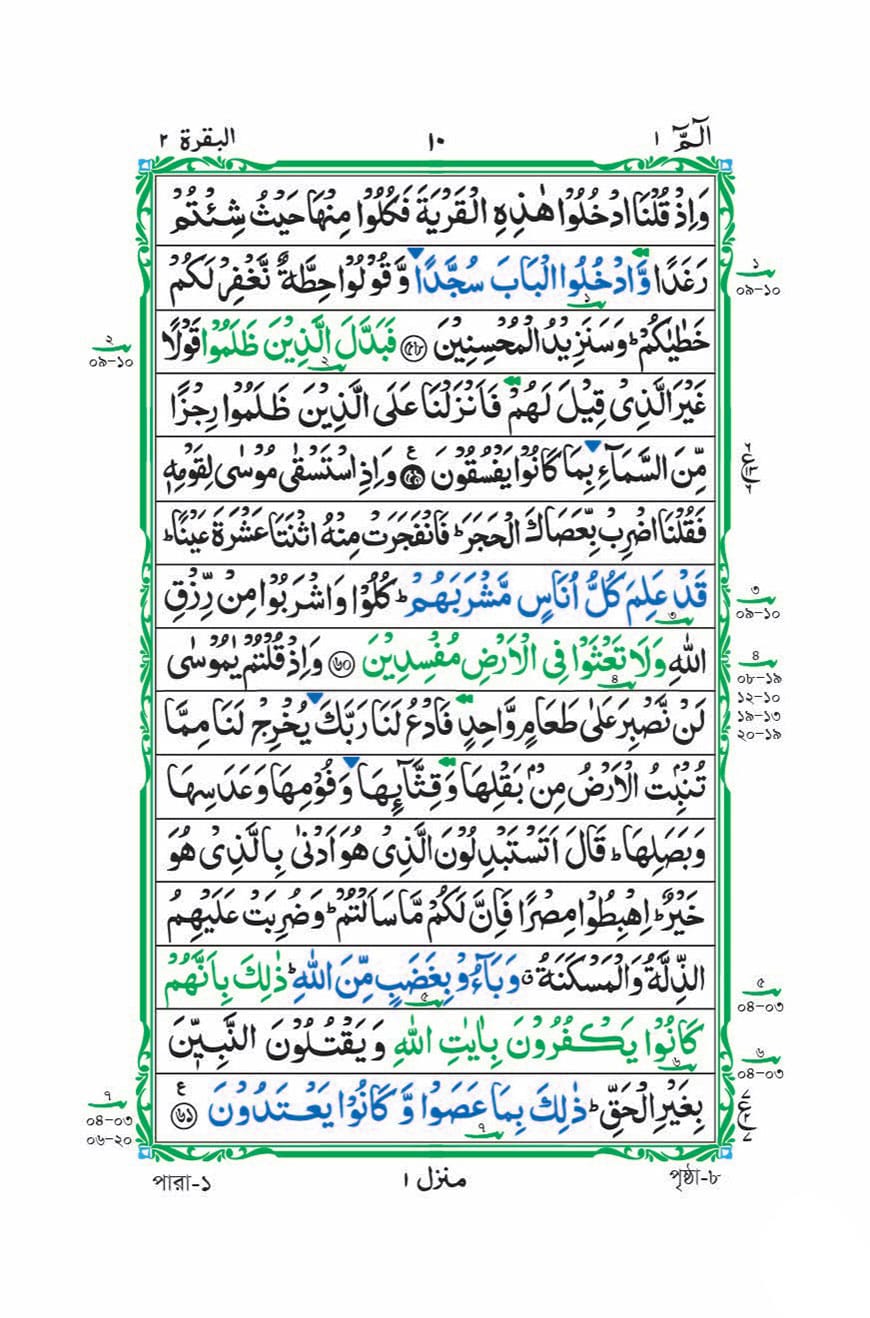 الٓمّٓ ١
١٠
البقرة ٢
وَاِذْ قُلْنَا ادْخُلُوْا هٰذِهِ الْقَرْيَةَ فَكُلُوْا مِنْهَا حَيْثُ شِئْتُمْ
رَغَدًا وَّادْخُلُوا الْبَابَ سُجَّدًا وَّقُوْلُوْا حِطَّةٌ نَّغْفِرْ لَكُمْ
خَطٰيٰكُمْ ؕ وَسَنَزِيْدُ الْمُحْسِنِيْنَ ﴿۵۸﴾ فَبَدَّلَ الَّذِيْنَ ظَلَمُوْا قَوْلًا
غَيْرَ الَّذِىْ قِيْلَ لَهُمْ فَاَنْزَلْنَا عَلَى الَّذِيْنَ ظَلَمُوْا رِجْزًا
مِّنَ السَّمَآءِ بِمَا كَانُوْا يَفْسُقُوْنَ ﴿۵۹﴾ ع وَاِذِ اسْتَسْقٰى مُوْسٰى لِقَوْمِهٖ
فَقُلْنَا اضْرِبْ بِّعَصَاكَ الْحَجَرَ ؕ فَانْفَجَرَتْ مِنْهُ اثْنَتَا عَشْرَةَ عَيْنًا ؕ
قَدْ عَلِمَ كُلُّ اُنَاسٍ مَّشْرَبَهُمْ ؕ كُلُوْا وَاشْرَبُوْا مِنْ رِّزْقِ
اللّٰهِ وَلَا تَعْثَوْا فِى الْاَرْضِ مُفْسِدِيْنَ ﴿۶۰﴾ وَاِذْ قُلْتُمْ يٰمُوْسٰى
لَنْ نَّصْبِرَ عَلٰى طَعَامٍ وَّاحِدٍ فَادْعُ لَنَا رَبَّكَ يُخْرِجْ لَنَا مِمَّا
تُنْۢبِتُ الْاَرْضُ مِنْۢ بَقْلِهَا وَقِثَّآئِهَا وَفُوْمِهَا وَعَدَسِهَا
وَبَصَلِهَا ؕ قَالَ اَتَسْتَبْدِلُوْنَ الَّذِىْ هُوَ اَدْنٰى بِالَّذِىْ هُوَ
خَيْرٌ ؕ اِهْبِطُوْا مِصْرًا فَاِنَّ لَكُمْ مَّا سَاَلْتُمْ ؕ وَضُرِبَتْ عَلَيْهِمُ
الذِّلَّةُ وَالْمَسْكَنَةُ ۗ وَبَآءُوْ بِغَضَبٍ مِّنَ اللّٰهِ ؕ ذٰلِكَ بِاَنَّهُمْ
كَانُوْا يَكْفُرُوْنَ بِاٰيٰتِ اللّٰهِ وَيَقْتُلُوْنَ النَّبِيّٖنَ
بِغَيْرِ الْحَقِّ ؕ ذٰلِكَ بِمَا عَصَوْا وَّكَانُوْا يَعْتَدُوْنَ ﴿۶۱﴾ ع
১
০৯-১০
২
০৯-১০
৩
০৯-১০
৪
০৮-১৯
১২-১০
১৯-১৩
২০-১৯
৫
০৪-০৩
৬
০৪-০৩
৭
০৪-০৩
০৬-২০
পৃষ্ঠা-৮
منزل ١
পারা-১